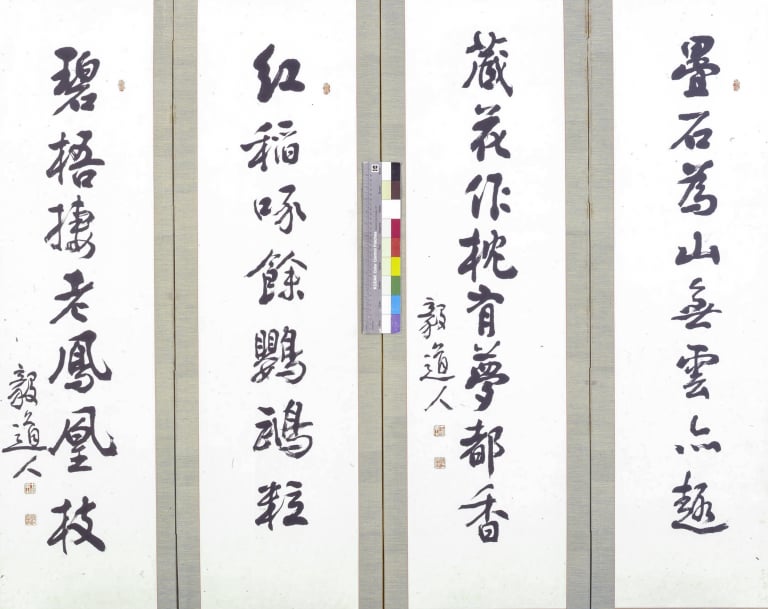 疊石為山無雲亦趣
藏花作枕有夢都香
毅道人
紅稲啄餘鸚鵡粒
碧梧棲老鳳凰枝
毅道人